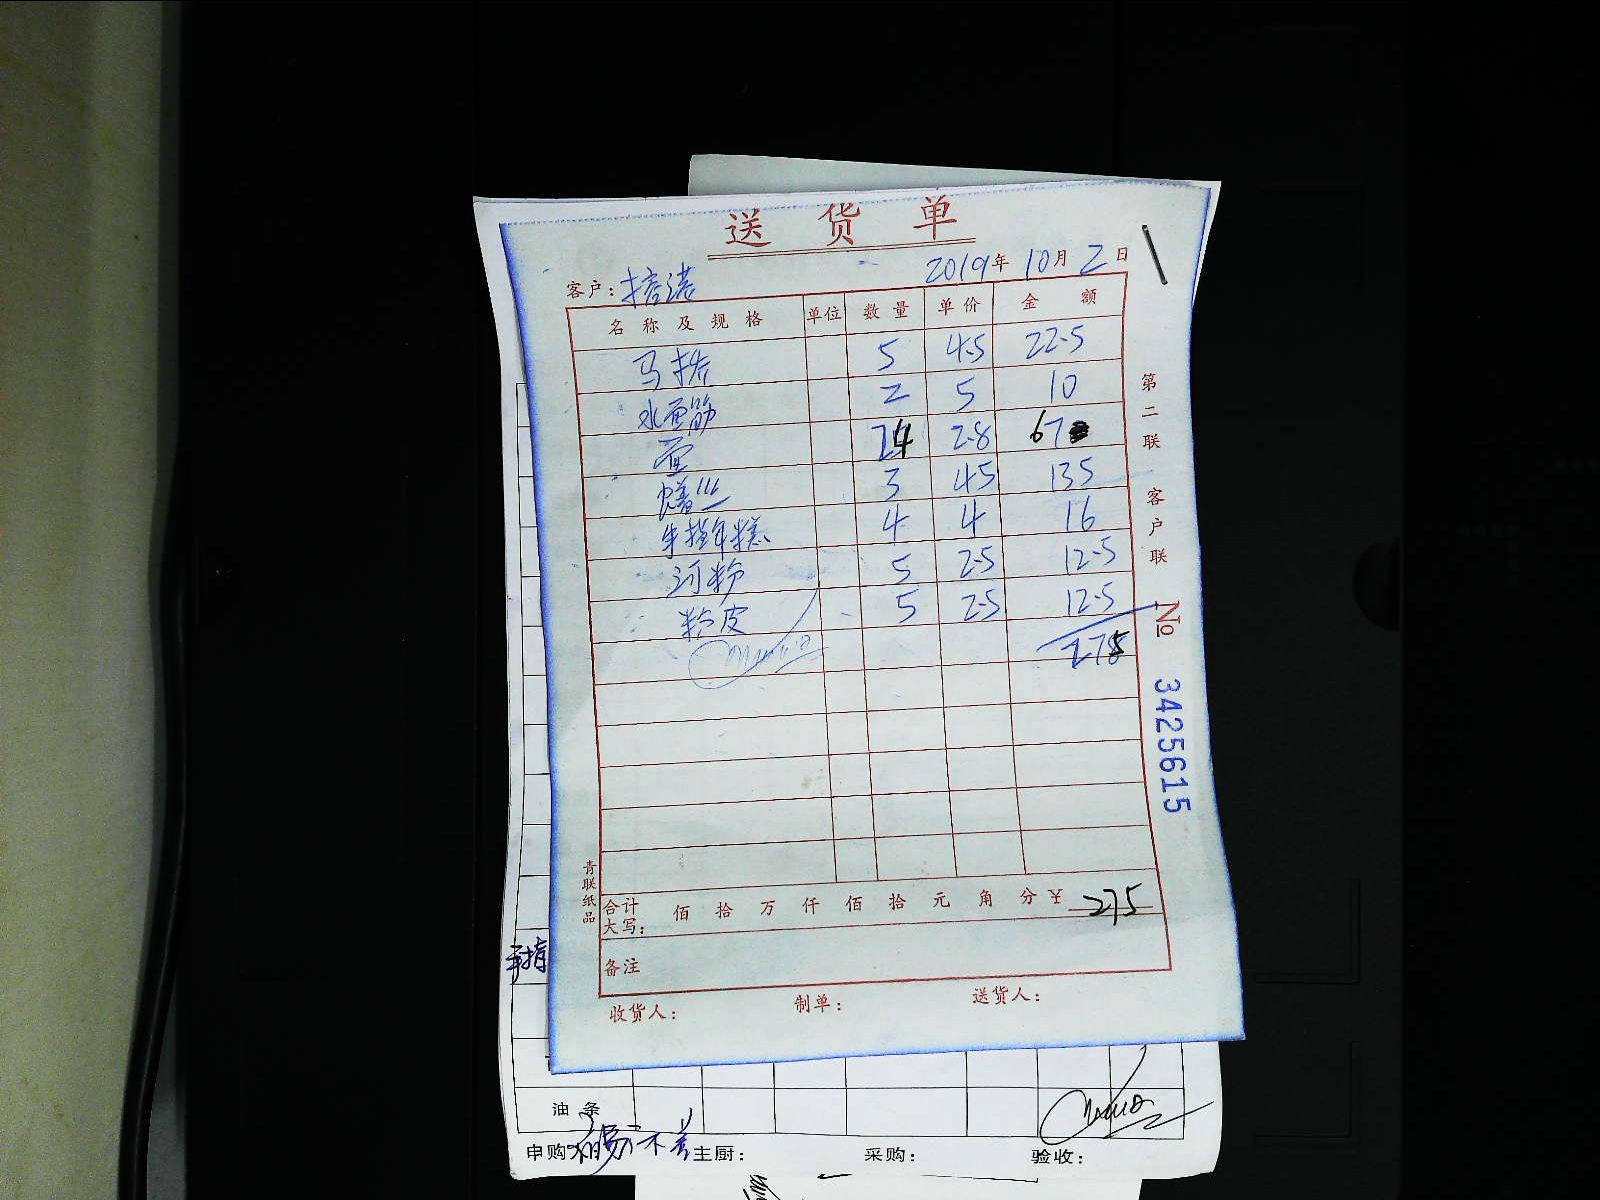 送货单
2019年10月2日
客户:
名称及规格 单位 数量 单价 金额
马拈 5 4.5 22.5
水面筋 2 5 10
面 24 2.8 67
3 45 135
年糕 4 4 16
河粉 5 2.5 12.5
粉皮 5 2.5 12.5
275
合计大写: 佰拾万仟佰拾元角分 ¥ 275
备注
收货人: 制单: 送货人:
第二联 客户联
№ 3425615
青联纸品
油条
申购人 主厨: 采购: 验收: